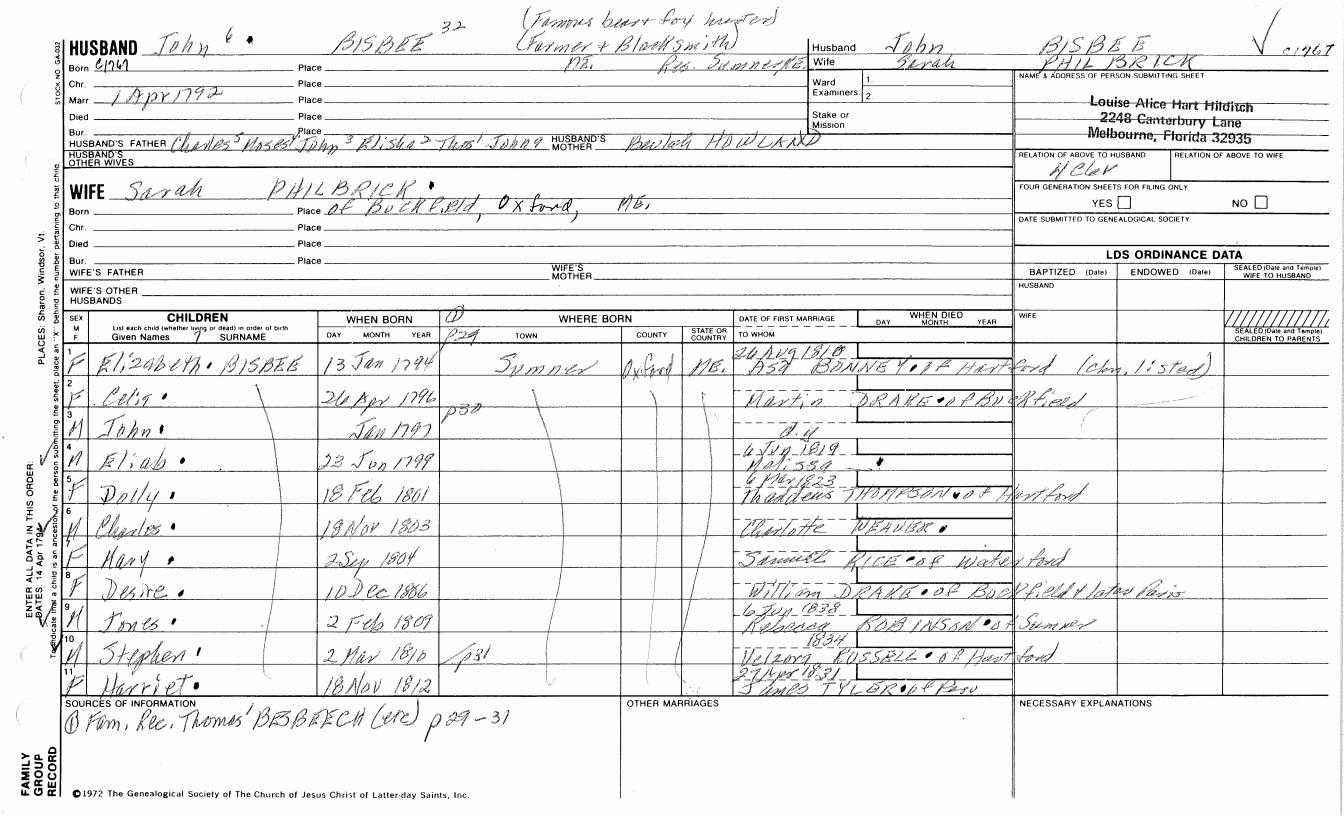 (Famous bear & fox hunter)
(Farmer & Blacksmith)
HUSBAND John 6 BISBEE 32
Born c1767 Place ME. Res. Sumner, ME.
Chr. Place
Marr 1 Apr 1792 Place
Died Place
Bur. Place
HUSBAND'S FATHER Charles5 Moses4 John3 Elisha2 Thos1 HUSBAND'S MOTHER Beulah HOWLAND
HUSBAND'S OTHER WIVES
WIFE Sarah PHILBRICK
Born Place of Buckfield, Oxford, ME.
Chr. Place
Died Place
Bur. Place
WIFE'S FATHER WIFE'S MOTHER
WIFE'S OTHER HUSBANDS
Husband John BISBEE c1767
Wife Sarah PHILBRICK
Ward Examiners 1. 2.
Stake or Mission
NAME & ADDRESS OF PERSON SUBMITTING SHEET
Louise Alice Hart Hilditch
2248 Canterbury Lane
Melbourne, Florida 32935
RELATION OF ABOVE TO HUSBAND RELATION OF ABOVE TO WIFE
FOUR GENERATION SHEETS FOR FILING ONLY
YES NO
DATE SUBMITTED TO GENEALOGICAL SOCIETY
LDS ORDINANCE DATA
BAPTIZED (Date) ENDOWED (Date) SEALED (Date and Temple) WIFE TO HUSBAND
HUSBAND
WIFE
SEALED (Date and Temple) CHILDREN TO PARENTS
SEX M F CHILDREN WHEN BORN WHERE BORN DATE OF FIRST MARRIAGE WHEN DIED
List each child (whether living or dead) in order of birth
Given Names 7 SURNAME DAY MONTH YEAR p29 TOWN COUNTY STATE OR COUNTRY TO WHOM DAY MONTH YEAR
1 F Elizabeth BISBEE 13 Jan 1794 Sumner Oxford ME. 26 Aug 1810 Asa BONNEY of Hartford (chn. listed)
2 F Celia 26 Apr 1796 p30 Martin DRAKE of Buckfield
3 M John Jan 1797 d.y
4 M Eliab 23 Jun 1799 6 Jun 1819 Melissa
5 F Dolly 18 Feb 1801 6 Mar 1823 Thaddeus THOMPSON of Hartford
6 M Charles 18 Nov 1803 Charlotte WEAVER
7 F Mary 2 Sep 1804 Samuel RICE of Waterford
8 F Desire 10 Dec 1806 William DRAKE of Buckfield & later Paris
9 M Jones 2 Feb 1809 6 Jun 1838 Rebecca ROBINSON of Sumner
10 M Stephen 2 Mar 1810 p31 1834 Velzora RUSSELL of Hartford
11 F Harriet 18 Nov 1812 27 Apr 1831 James TYLER of Peru
SOURCES OF INFORMATION OTHER MARRIAGES NECESSARY EXPLANATIONS
① Fam. Rec. Thomas1 BESBEECH (etc) p29-31
©1972 The Genealogical Society of The Church of Jesus Christ of Latter-day Saints, Inc.
STOCK NO. GA-032
To indicate that a child is an ancestor of the person submitting the sheet, place an "X" behind the number pertaining to that child.
ENTER ALL DATA IN THIS ORDER:
DATES: 14 Apr 1794
PLACES: Sharon, Windsor, Vt.
FAMILY GROUP RECORD